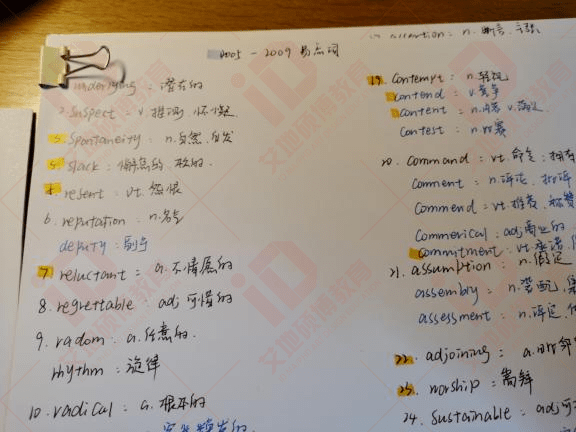 2005 - 2009 易忘词
underlying : 潜在的
2. suspect : v. 推测, 怀疑
3. Spontaneity : n. 自然, 自发
5. slack : 懈怠的, 松的.
4. resent : vt. 怨恨
6. reputation : n. 名声
deputy : 副手
7. reluctant : a. 不情愿的
8. regrettable : adj 可惜的
9. radom : a. 任意的.
rhythm : 旋律
10. radical : a. 根本的
assertion : n. 断言, 主张
19. Contempt : n. 轻视
Contend : v. 竞争
Content : n. 内容 v. 满足
Contest : n. 比赛
20. Command : vt. 命令; 拥有
Comment : n. 评论, 批评
Commend : vt. 推荐, 称赞
Commerical : adj 商业的
Commitment : vt. 承诺
21. assumption : n. 假定
assembly : n. 装配, 集
assessment : n. 评定, 估
22. adjoining : a. 毗邻
23. worship : 崇拜
24. Sustainable : adj 可